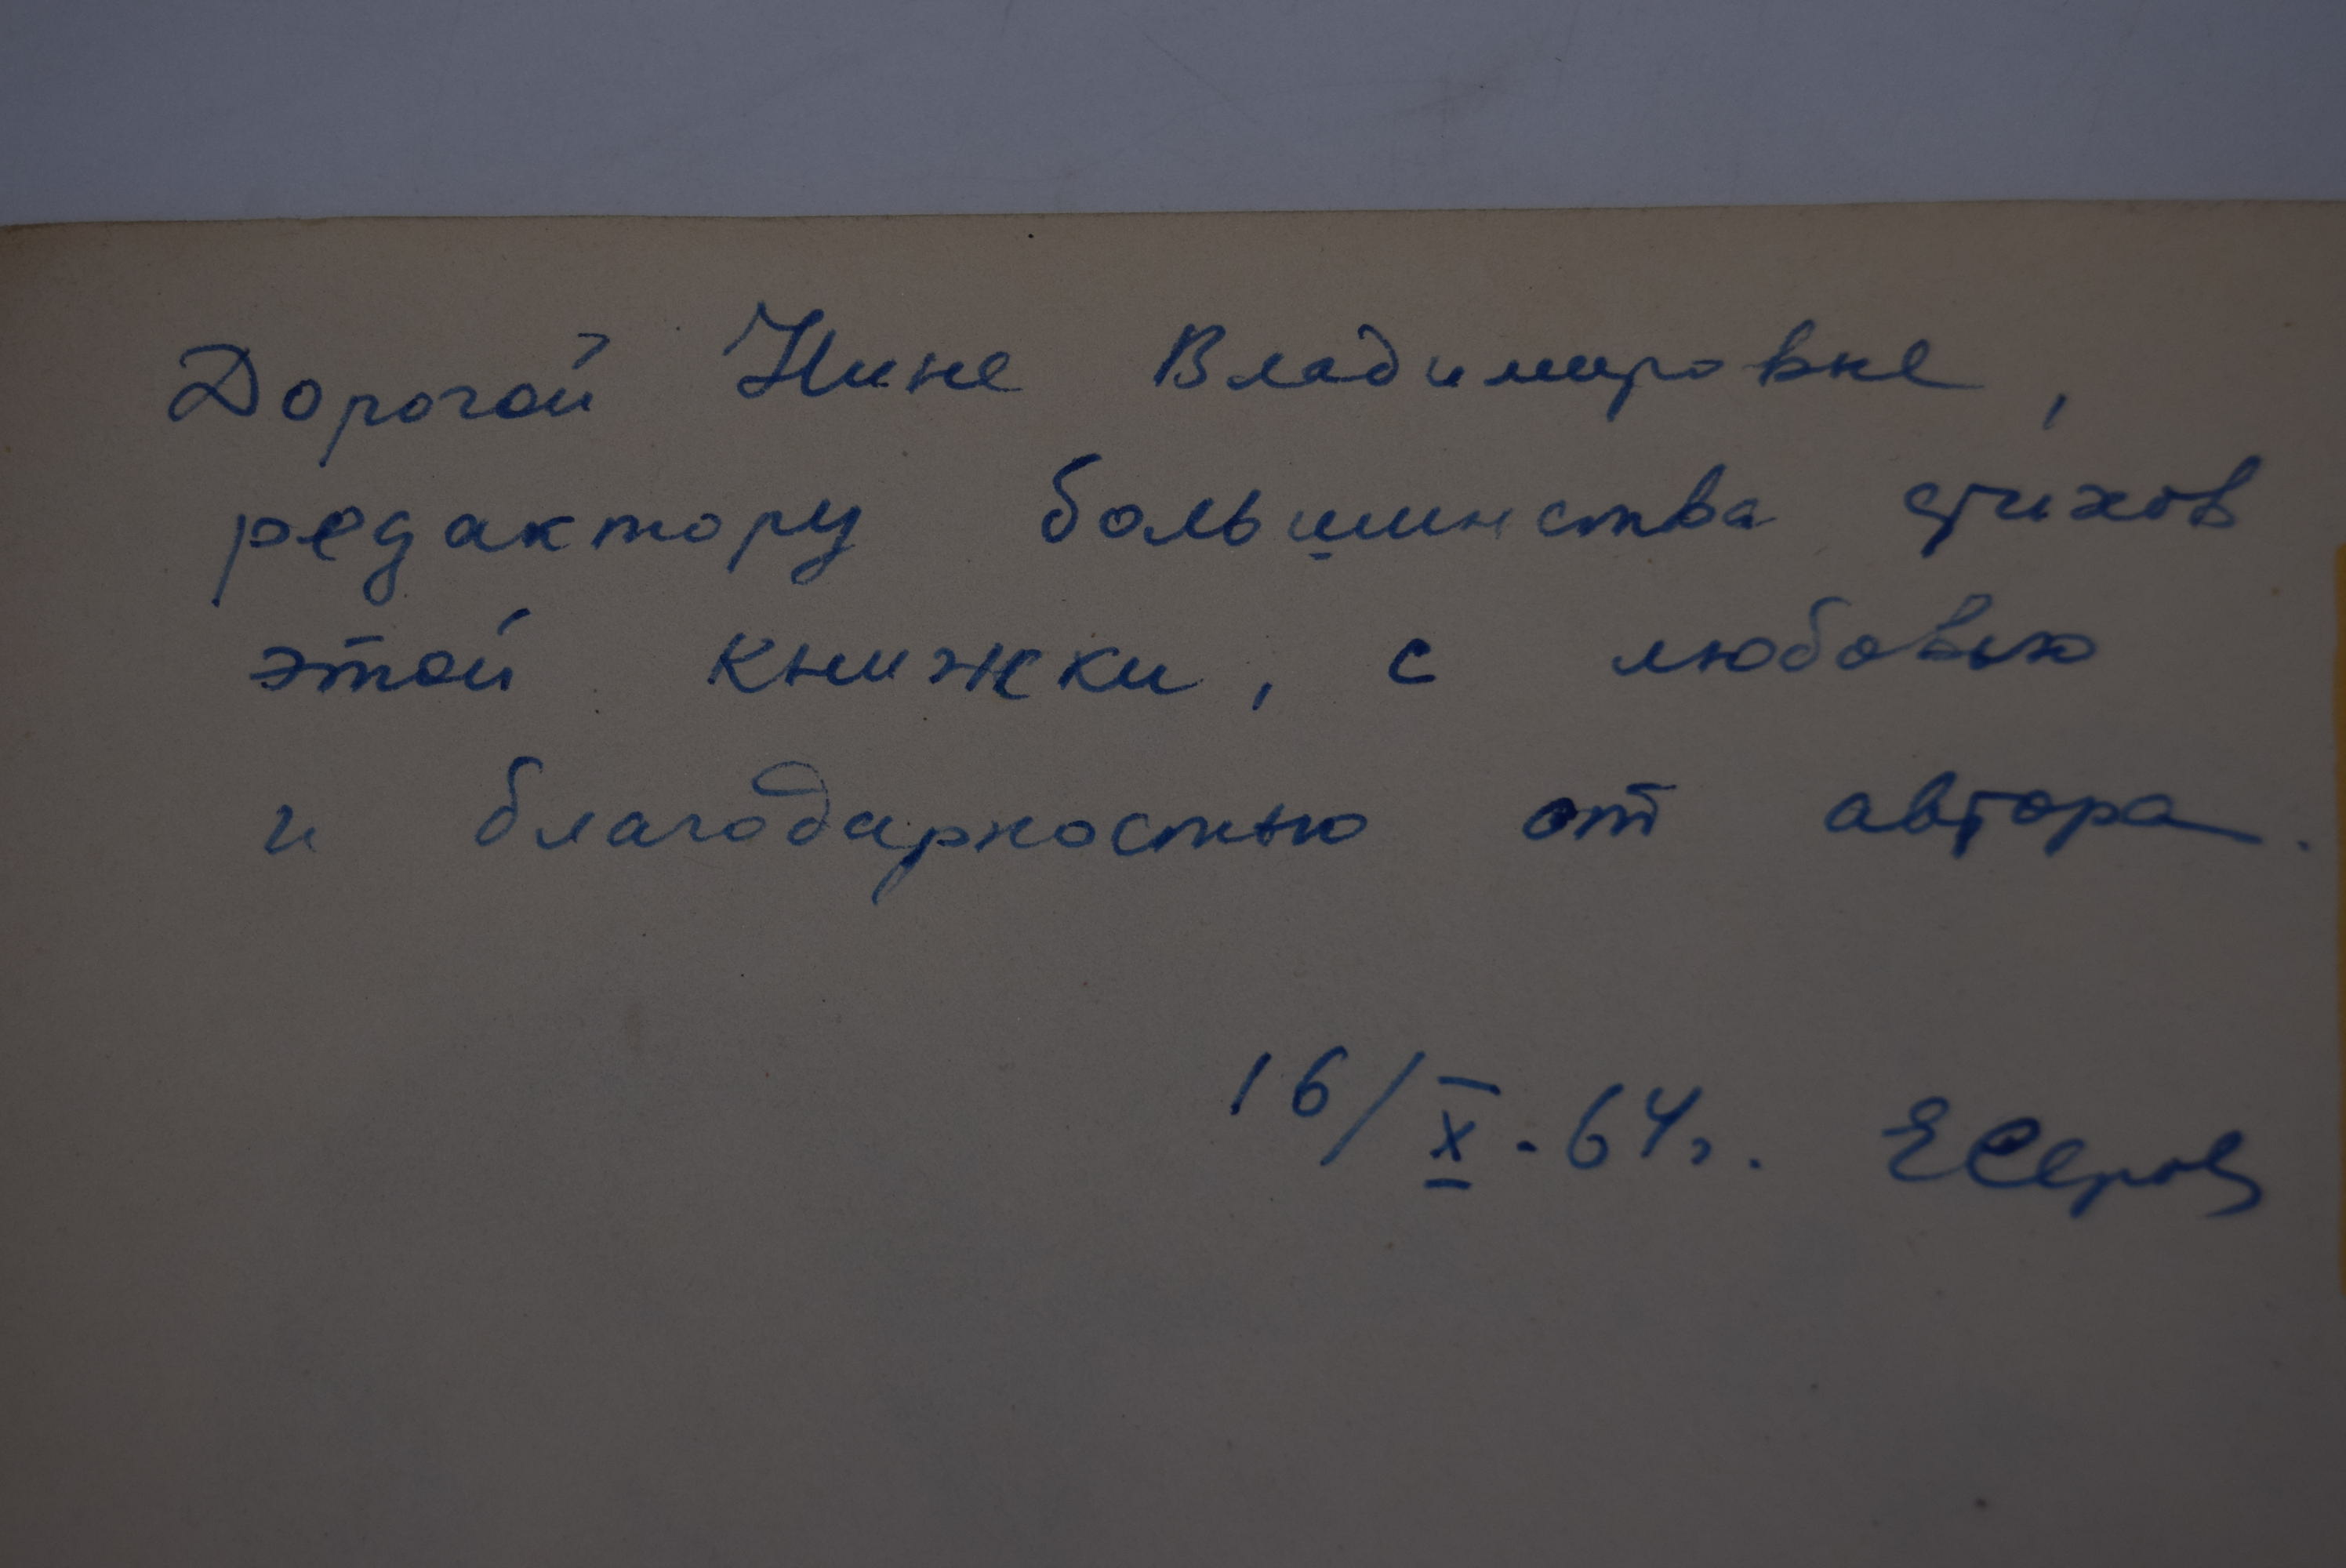 Дорогой Нине Владимировне,
редактору большинства стихов
этой книжки, с любовью
и благодарностью от автора.
16/X.64г. ЕСеров